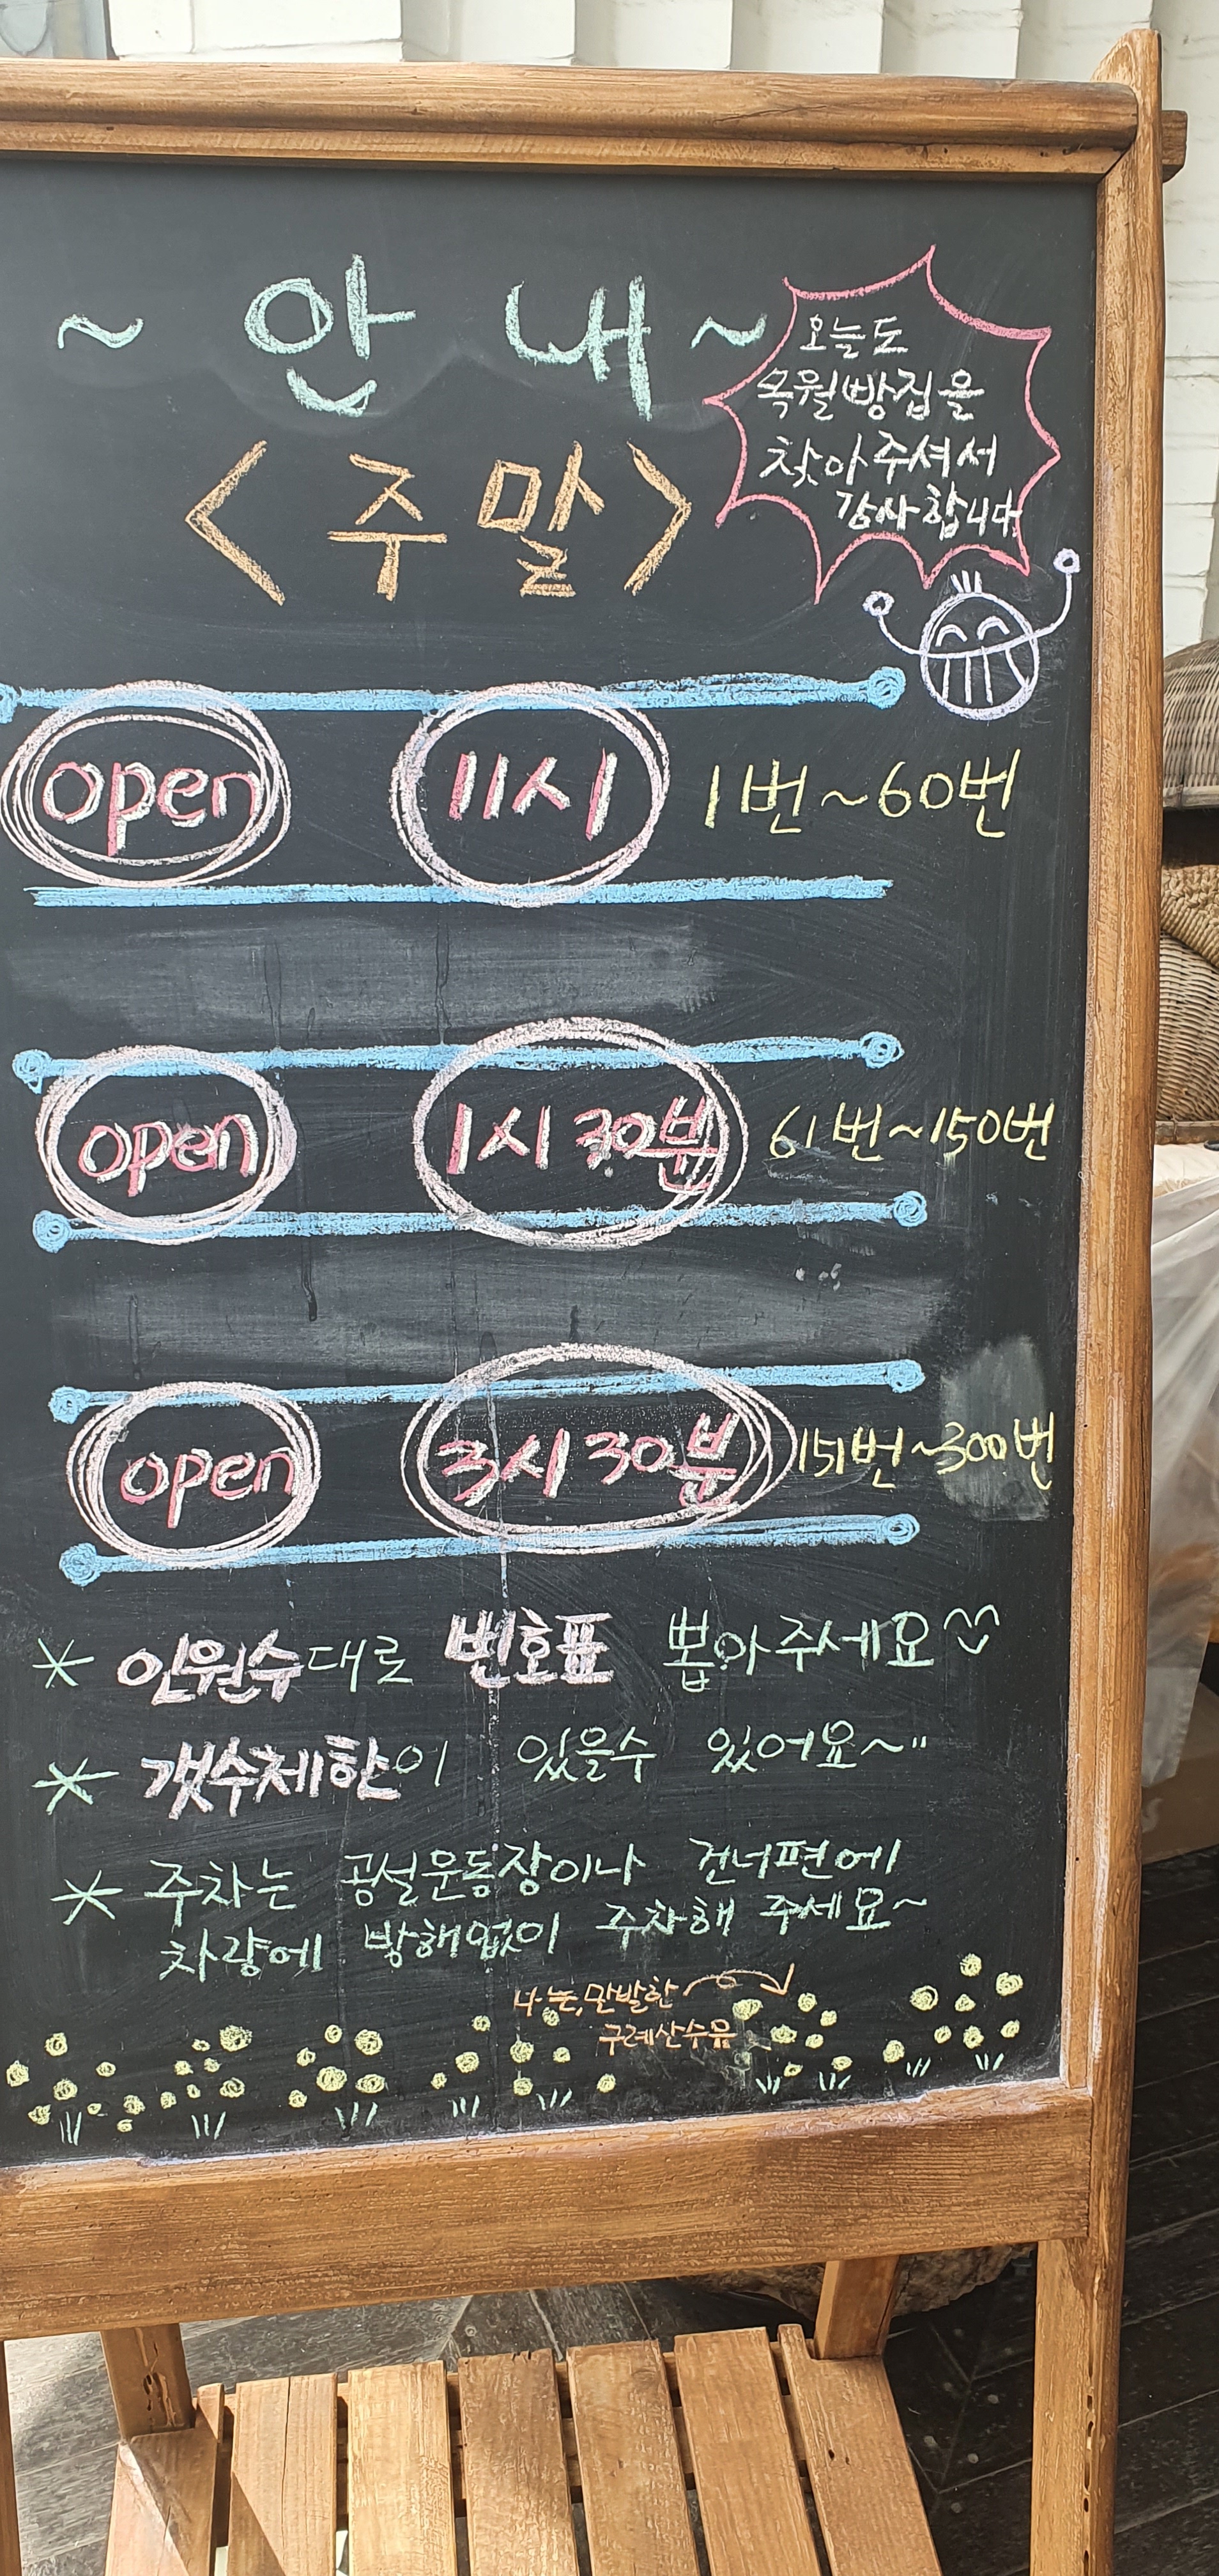 ~ 안 내 ~
오늘도
목월빵집을
찾아주셔서
감사합니다
<주말>
open 11시 1번~60번
open 1시 30분 61번~150번
open 3시 30분 151번~300번
* 인원수대로 번호표 뽑아주세요^^
* 갯수제한이 있을수 있어요~"
* 주차는 공설운동장이나 건너편에
차량에 방해없이 주차해 주세요~
나는, 만발한
구례산수유